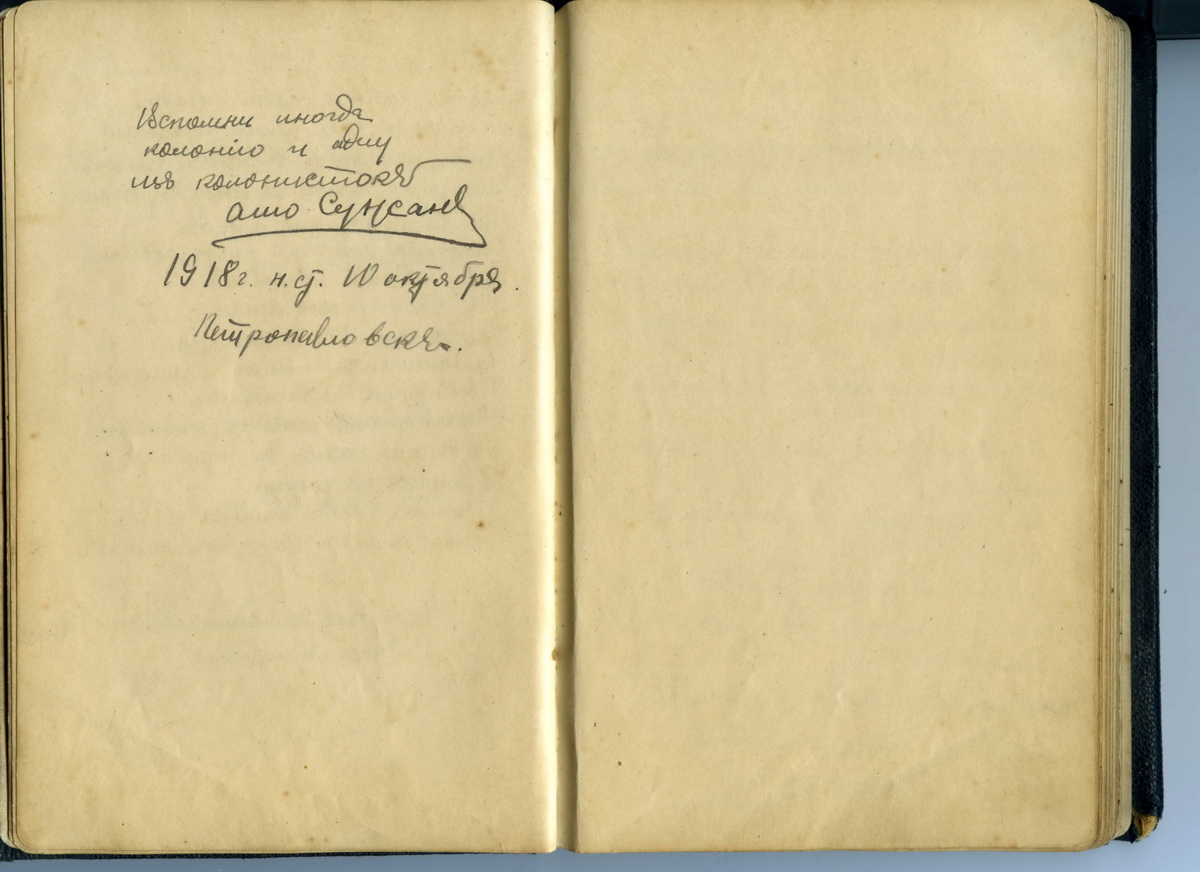 Вспомни иногда
колонію и одну
изъ колонистокъ
Сунсанъ
1918г. н.ст. 10 октября.
Петропавловскъ.